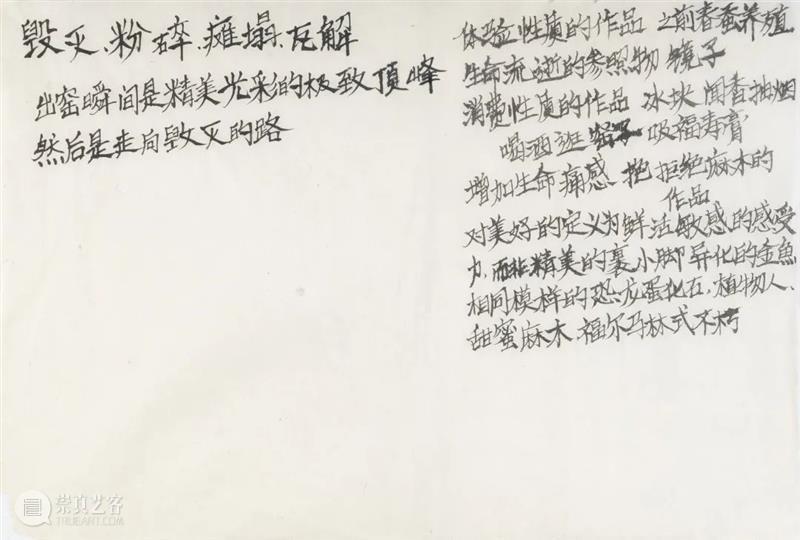 毁灭、粉碎、瘫塌、瓦解
出窑瞬间是精美光彩的极致頂峰
然后是走向毁灭的路
体验性质的作品 之前春蚕养殖
生命流逝的参照物 镜子
消费性质的作品 冰块 闻香抽烟
喝酒逛 吸福寿膏
增加生命痛感 拒绝麻木的
作品
对美好的定义为鲜活敏感的感受
力,而非精美的裹小脚异化的金魚
相同模样的恐龙蛋化石,植物人、
甜蜜麻木、福尔马林式不朽
崇真艺客
TRUEART.COM